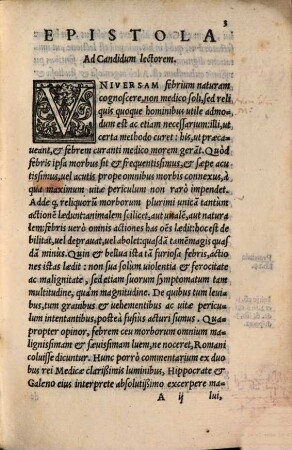 3
EPISTOLA
Ad Candidum lectorem.
VNIVERSAM febrium naturam
cognoscere, non medico soli, sed reli
quis quoque hominibus utile admo-
dum est ac etiam necessariũ: illi, ut
certa methodo curet: his, ut præca-
ueant, & febrem curanti medico morem gerãt. Quòd
febris ipsa morbus sit & frequentissimus, & sæpe acu
tissimus, uel acutis prope omnibus morbis connexus, à
qua maximum uitæ periculum non rarò impendet.
Adde q̃ reliquorũ morborum plurimi unicã tantum
actionẽ lædunt: animalem scilicet, aut uitalẽ, aut natura
lem: febris uerò omnis actiones has oẽs lædit: hoc est de
bilitat, uel deprauat, uel abolet: quasdã tamẽ magis quàs
dã minus. Quin & bellua ista tã furiosa, febris, actio
nes istas lædit: non sua solum uiolentia & ferocitate
ac malignitate, sed etiam suorum symptomatum tam
multitudine, quàm magnitudine. De quibus tum leuio
bus, tum grauibus & uehementibus ac uitæ pericu
lum intentantibus, posteà fusius acturi sumus. Qua-
propter opinor, febrem ceu morborum omnium ma-
lignissimam & sæuissimam luem, ne noceret, Romani
coluisse dicuntur. Hunc porrò commentarium ex duo
bus rei Medicæ clarissimis luminibus, Hippocrate &
Galeno eius interprete absolutissimo excerpere ma-
A ij
lui,